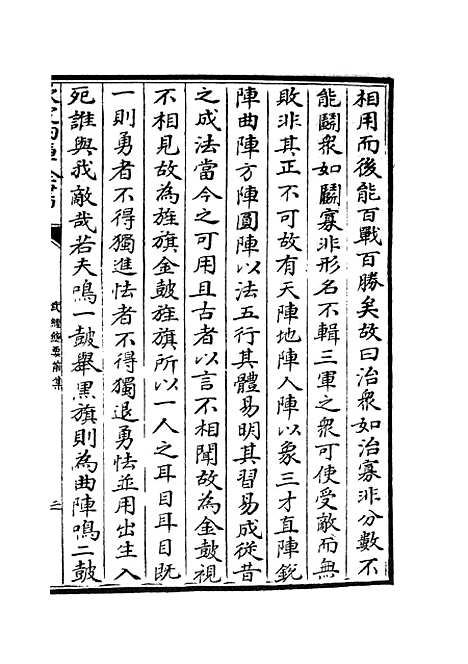 相用而後能百戰百勝矣故曰治衆如治寡非分數不
能鬭衆如鬭寡非形名不輯三軍之衆可使受敵而無
敗非其正不可故有天陣地陣人陣以象三才直陣銳
陣曲陣方陣圓陣以法五行其體易明其習易成從昔
之成法當今之可用且古者以言不相聞故為金鼓視
不相見故為旌旗金鼓旌旗所以一人之耳目耳目既
一則勇者不得獨進怯者不得獨退勇怯並用出生入
死誰與我敵哉若夫鳴一鼓舉黑旗則為曲陣鳴二鼓
武經總要前集
二